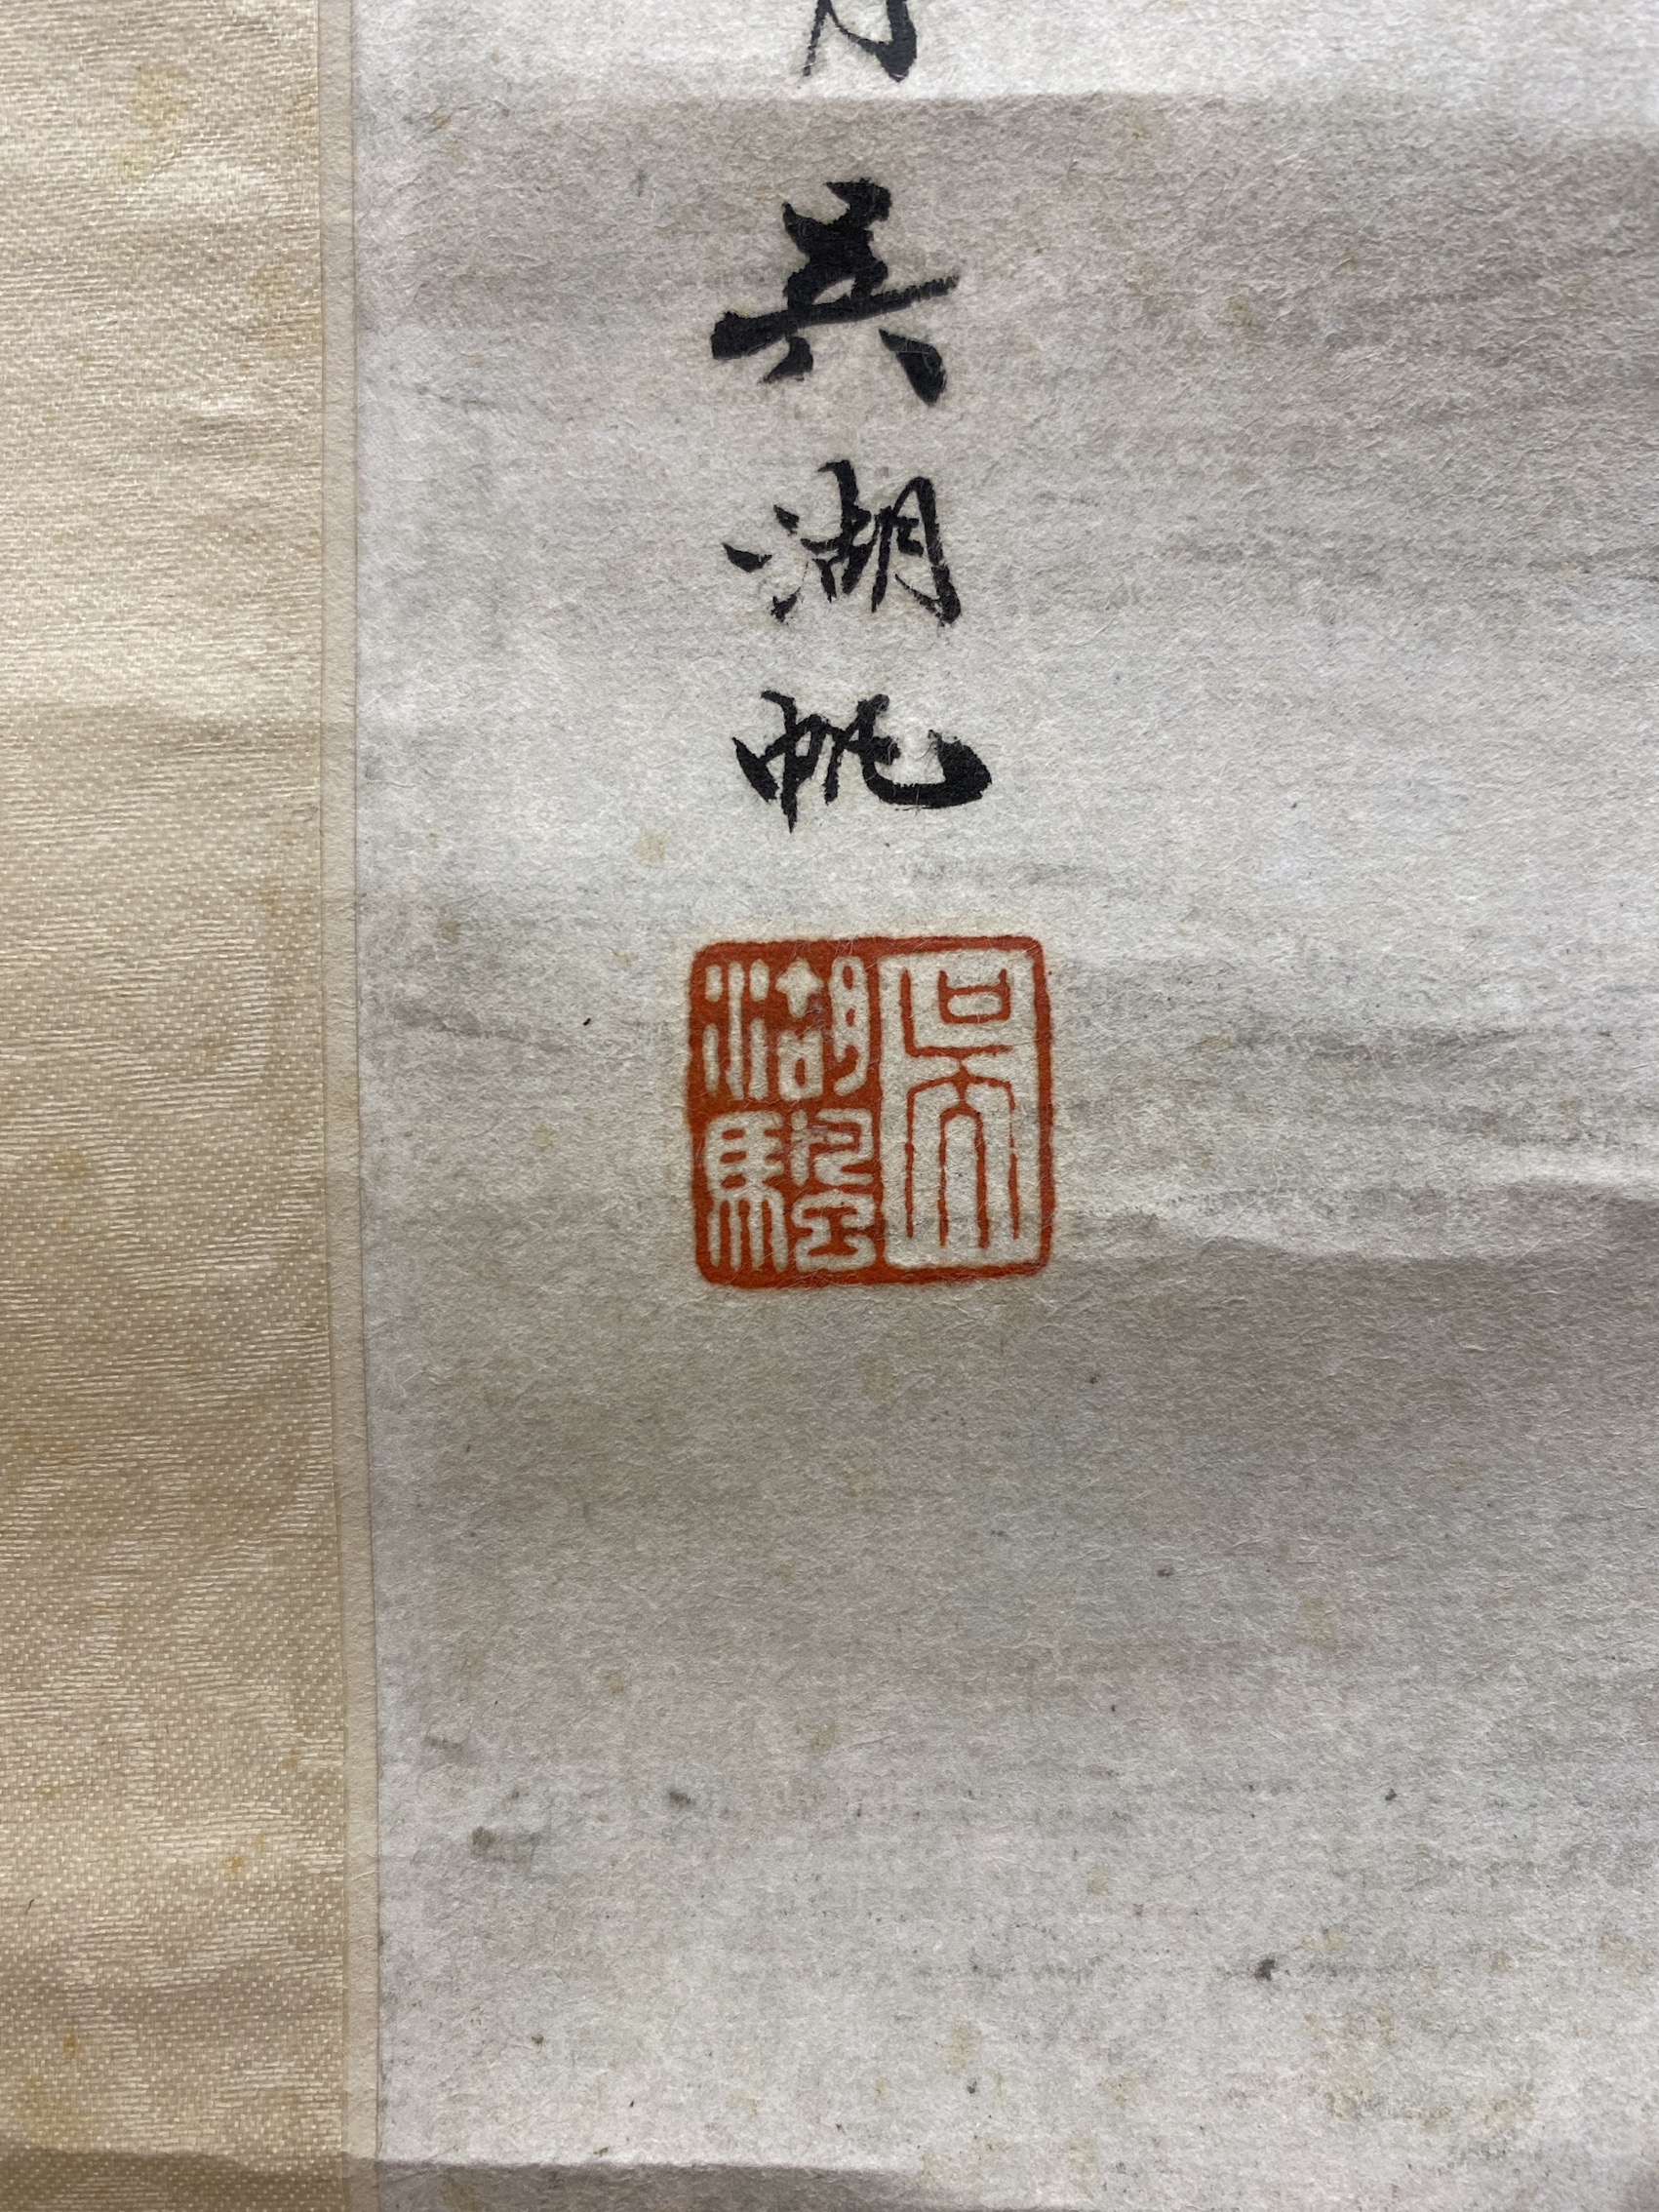 吳湖帆
吳湖颿